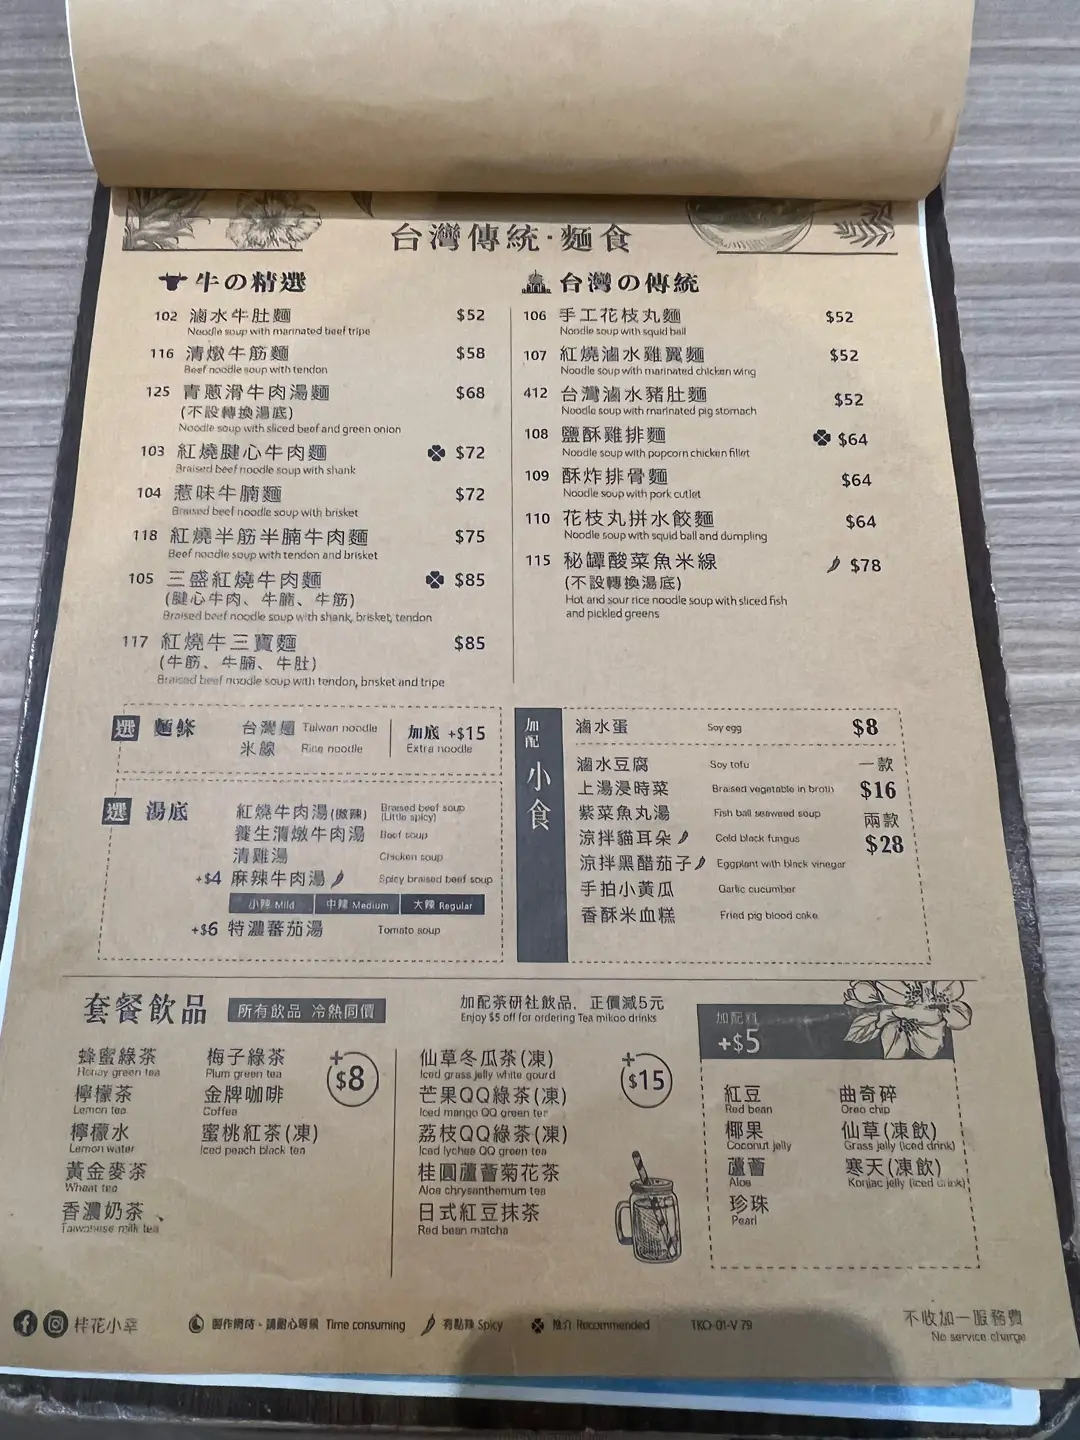 台灣傳統·麵食
牛の精選
102 滷水牛肚麵 $52
Noodle soup with marinated beef tripe
116 清燉牛筋麵 $58
Beef noodle soup with tendon
125 青蔥滑牛肉湯麵 $68
(不設轉換湯底)
Noodle soup with sliced beef and green onion
103 紅燒腱心牛肉麵 $72
Braised beef noodle soup with shank
104 惹味牛腩麵 $72
Braised beef noodle soup with brisket
118 紅燒半筋半腩牛肉麵 $75
Beef noodle soup with tendon and brisket
105 三盛紅燒牛肉麵 $85
(腱心牛肉、牛腩、牛筋)
Braised beef noodle soup with shank, brisket, tendon
117 紅燒牛三寶麵 $85
(牛筋、牛腩、牛肚)
Braised beef noodle soup with tendon, brisket and tripe
台灣の傳統
106 手工花枝丸麵 $52
Noodle soup with squid ball
107 紅燒滷水雞翼麵 $52
Noodle soup with marinated chicken wing
412 台灣滷水豬肚麵 $52
Noodle soup with marinated pig stomach
108 鹽酥雞排麵 $64
Noodle soup with popcorn chicken fillet
109 酥炸排骨麵 $64
Noodle soup with pork cutlet
110 花枝丸拼水餃麵 $64
Noodle soup with squid ball and dumpling
115 秘罈酸菜魚米線 $78
(不設轉換湯底)
Hot and sour rice noodle soup with sliced fish
and pickled greens
選 麵條
台灣麵 Taiwan noodle
米線 Rice noodle
加底 +$15
Extra noodle
選 湯底
紅燒牛肉湯(微辣) Braised beef soup
(Little spicy)
養生清燉牛肉湯 Beef soup
清雞湯 Chicken soup
+$4 麻辣牛肉湯 Spicy braised beef soup
小辣 Mild 中辣 Medium 大辣 Regular
+$6 特濃蕃茄湯 Tomato soup
加配 小食
滷水蛋 Soy egg $8
滷水豆腐 Soy tofu
上湯浸時菜 Braised vegetable in broth
紫菜魚丸湯 Fish ball seaweed soup
涼拌貓耳朵 Cold black fungus
涼拌黑醋茄子 Eggplant with black vinegar
手拍小黃瓜 Garlic cucumber
香酥米血糕 Fried pig blood cake
一款
$16
兩款
$28
套餐飲品 所有飲品 冷熱同價
加配茶研社飲品，正價減5元
Enjoy $5 off for ordering Tea mikoo drinks
蜂蜜綠茶
Honey green tea
檸檬茶
Lemon tea
檸檬水
Lemon water
黃金麥茶
Wheat tea
香濃奶茶
Taiwanese milk tea
梅子綠茶
Plum green tea
金牌咖啡
Coffee
蜜桃紅茶(凍)
Iced peach black tea
+$8
仙草冬瓜茶(凍)
Iced grass jelly white gourd
芒果QQ綠茶(凍)
Iced mango QQ green tea
荔枝QQ綠茶(凍)
Iced lychee QQ green tea
桂圓蘆薈菊花茶
Aloe chrysanthemum tea
日式紅豆抹茶
Red bean matcha
+$15
加配料
+$5
紅豆
Red bean
椰果
Coconut jelly
蘆薈
Aloe
珍珠
Pearl
曲奇碎
Oreo chip
仙草(凍飲)
Grass jelly (iced drink)
寒天(凍飲)
Konjac jelly (iced drink)
Time consuming
有點辣 Spicy
推介 Recommended
TKO-01-V 79
不收加一服務費
No service charge